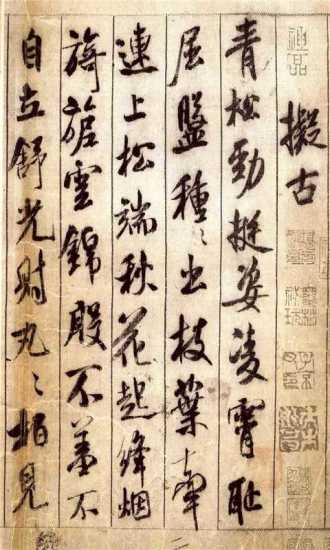 擬古
青松勁挺姿凌霄恥
屈盤種〻出枝葉牽
連上松端秋花起絳烟
旖旎雲錦殷不羞不
自立舒光射丸〻柏見
二